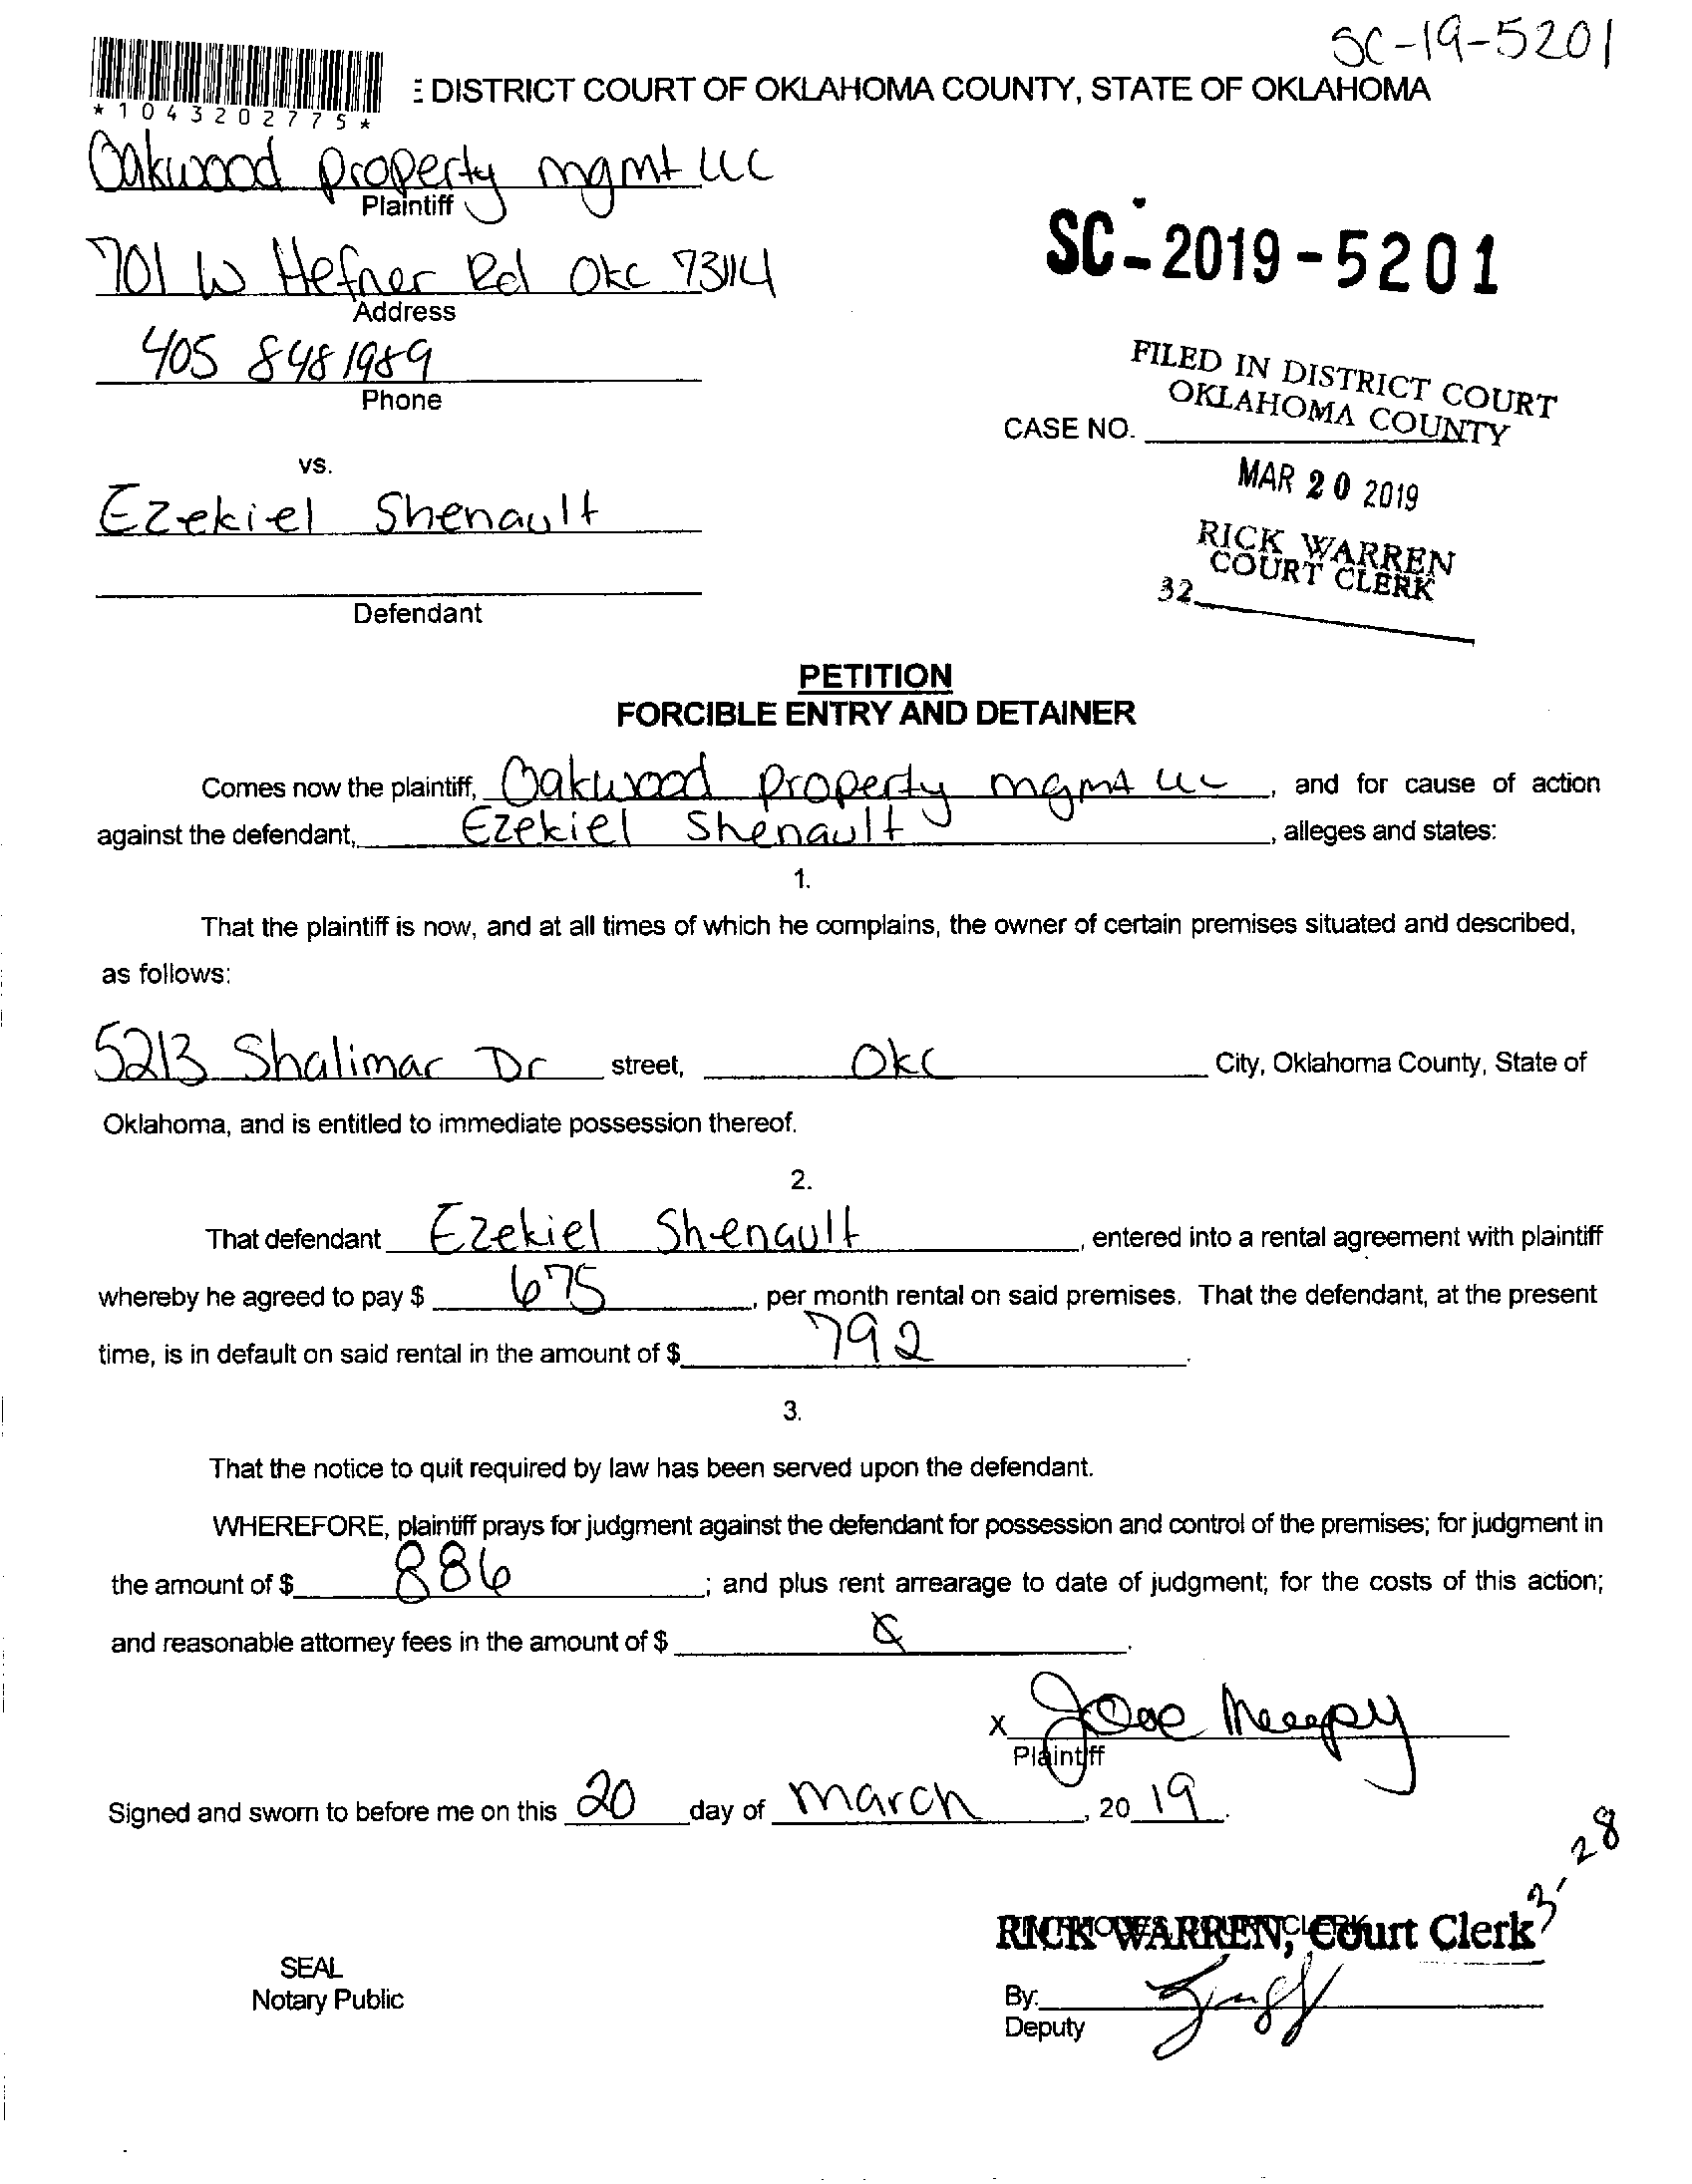 SC-19-5201
DISTRICT COURT OF OKLAHOMA COUNTY, STATE OF OKLAHOMA
*1043202775*
Oakwood Property mgmt LLC
Plaintiff
701 W Hefner Rd Okc 73114
Address
SC-2019-5201
405 848 1989
Phone
FILED IN DISTRICT COURT
OKLAHOMA COUNTY
CASE NO.
vs.
MAR 20 2019
Ezekiel Shenault
RICK WARREN
COURT CLERK
32
Defendant
PETITION
FORCIBLE ENTRY AND DETAINER
Comes now the plaintiff, Oakwood Property mgmt LLC, and for cause of action
against the defendant, Ezekiel Shenault, alleges and states:
1.
That the plaintiff is now, and at all times of which he complains, the owner of certain premises situated and described,
as follows:
5213 Shalimar Dr street, Okc City, Oklahoma County, State of
Oklahoma, and is entitled to immediate possession thereof.
2.
That defendant Ezekiel Shenault, entered into a rental agreement with plaintiff
whereby he agreed to pay $ 675, per month rental on said premises. That the defendant, at the present
time, is in default on said rental in the amount of $ 792.
3.
That the notice to quit required by law has been served upon the defendant.
WHEREFORE, plaintiff prays for judgment against the defendant for possession and control of the premises; for judgment in
the amount of $ 886; and plus rent arrearage to date of judgment; for the costs of this action;
and reasonable attorney fees in the amount of $.
X
Plaintiff
Signed and sworn to before me on this 20 day of March, 20 19.
3-28
RICK WARREN, Court Clerk
SEAL
Notary Public
By:
Deputy